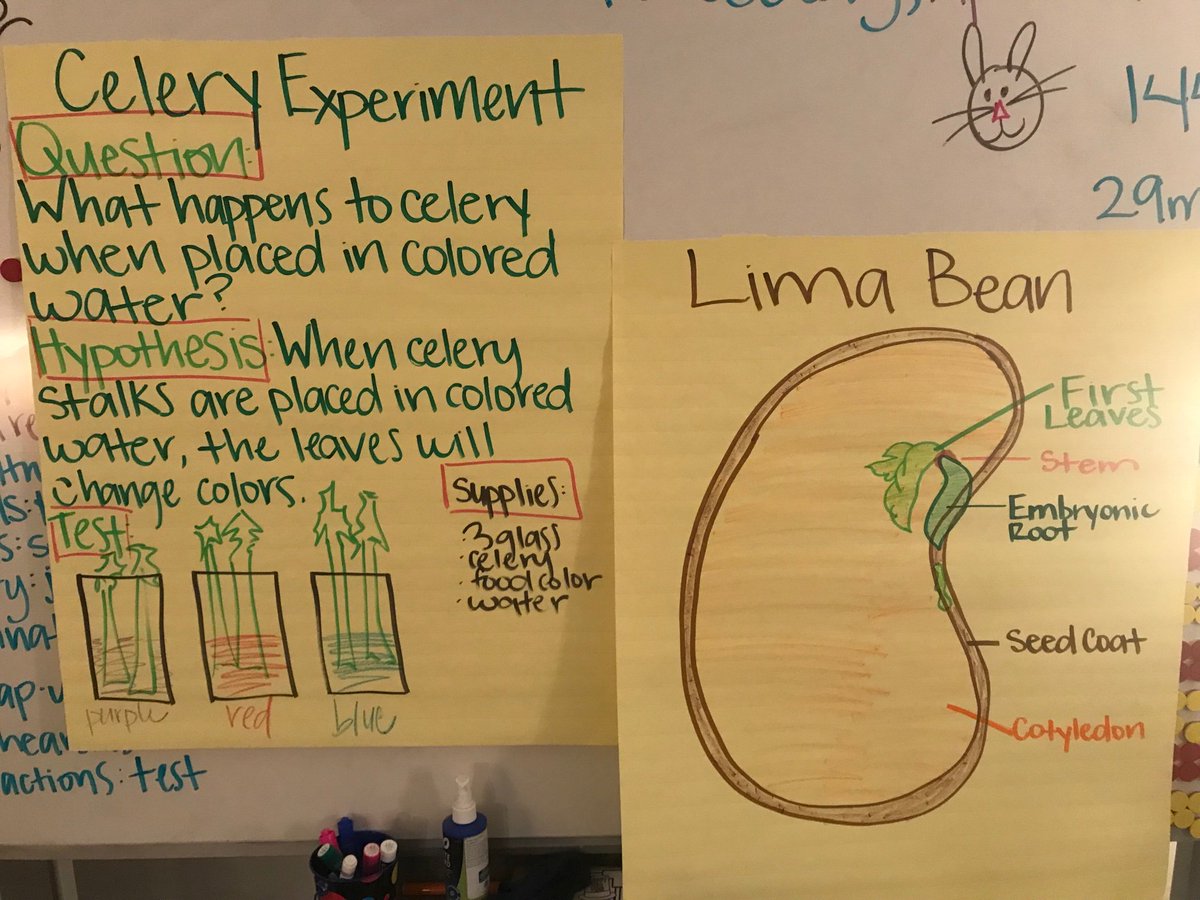 Celery Experiment
Question:
What happens to celery
when placed in colored
water?
Hypothesis: When celery
stalks are placed in colored
water, the leaves will
change colors.
Test
Supplies:
3 glass
· celery
· food color
· water
purple
red
blue
Lima Bean
First
Leaves
Stem
Embryonic
Root
Seed Coat
Cotyledon
144
29m
actions: test